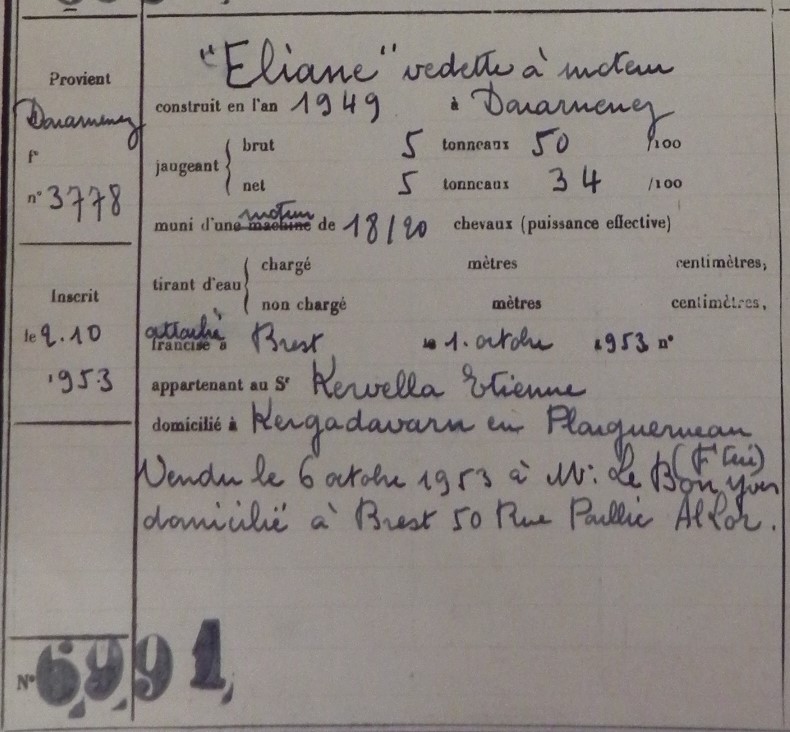 Provient
Douarnenez
f°
n° 3778
Inscrit
le 2.10
1953
"Eliane" vedette à moteur
construit en l'an 1949 à Douarnenez
jaugeant
brut 5 tonneaux 50 /100
net 5 tonneaux 34 /100
moteur
muni d'une machine de 18/20 chevaux (puissance effective)
tirant d'eau
chargé mètres centimètres,
non chargé mètres centimètres,
attaché
francisé à Brest le 1. octobre 1953 n°
appartenant au Sr Kervella Etienne
domicilié à en Plouguerneau
Vendu le 6 octobre 1953 à Mr: Le Bon Yves
domicilié à Brest 50 Rue
N° 6991